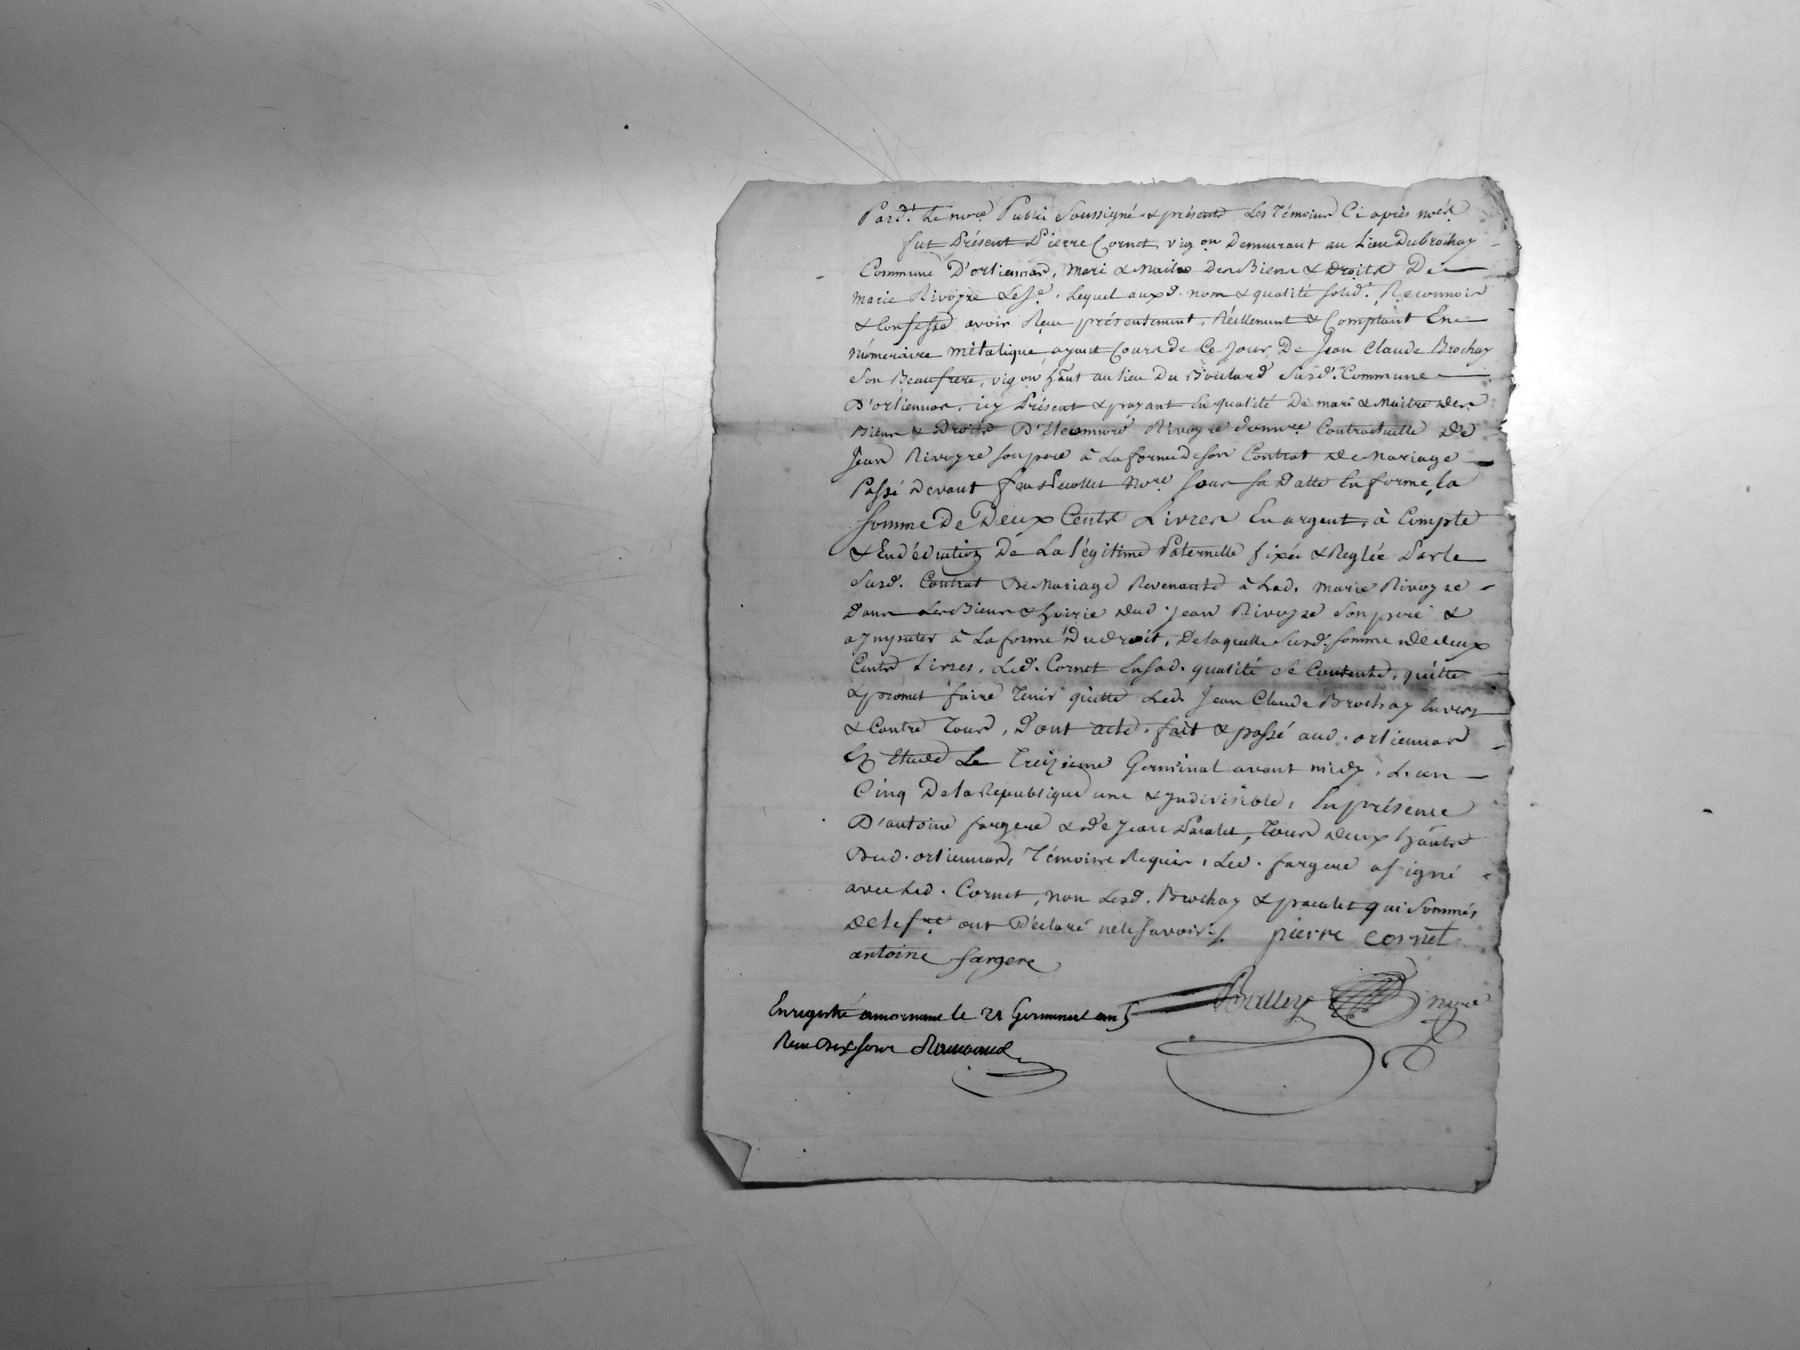 Pard.t Le no.re Public Soussigné & présents Les Témoins Ci après no.és
fut Présent Pierre Cornet, vig.on Demeurant au Lieu Dubrochay
Commune D'orliennas, Mari & Maitre Des Biens & Droits De
Marie Rivoyre Les.e, Lequel auxd. nom & qualité solid.t Reconnoit
& Confesse avoir Reçu présentement, Réellement & Comptant En
Numéraire métalique ayant Cours de Ce Jour, De Jean Claude Brochay
Son Beaufrere, vig.on h.ant au lieu Du Boulard Susd. Commune
D'orliennas, icy Présent & payant En qualité De mari & Maitre des
Biens & Droits Rivoyre Contractuelle de
Jean Rivoyre Son pere à La forme de son Contrat de Mariage
Passé devant feu No.re Sous sa Datte En forme, La
Somme De Deux Cents Livres En argent, à Compte
& En déduction De La légitime Paternelle fixée & Reglée Par le
Susd. Contrat De Mariage Revenante à Lad. Marie Rivoyre
Dans Les Biens & hoirie dud. Jean Rivoyre Son pere &
a Imputer à La forme Du droit, De laquelle Susd. somme de deux
Cents Livres, Led. Cornet En Sad. qualité Se Contente, quitte
& promet faire Tenir quitte Led. Jean Claude Brochay Envers
& Contre Tous, Dont acte, fait & passé aud. orliennas
Etude Le Treizieme Germinal avant midy, L'an
Cinq De la Republique une & Indivisible, En présence
D'antoine fargere & de Jean Paculet, Tous deux h.ants
Dud. orliennas, Témoins Requis, Led. fargere a signé
avec Led. Cornet, non Lesd. Brochay & paculet qui Sommés
de le f.re ont Déclaré ne le Savoir./. pierre cornet
antoine fargere
Enregistré a mornant le 21 Germinal an 5
Reçu Dix sous